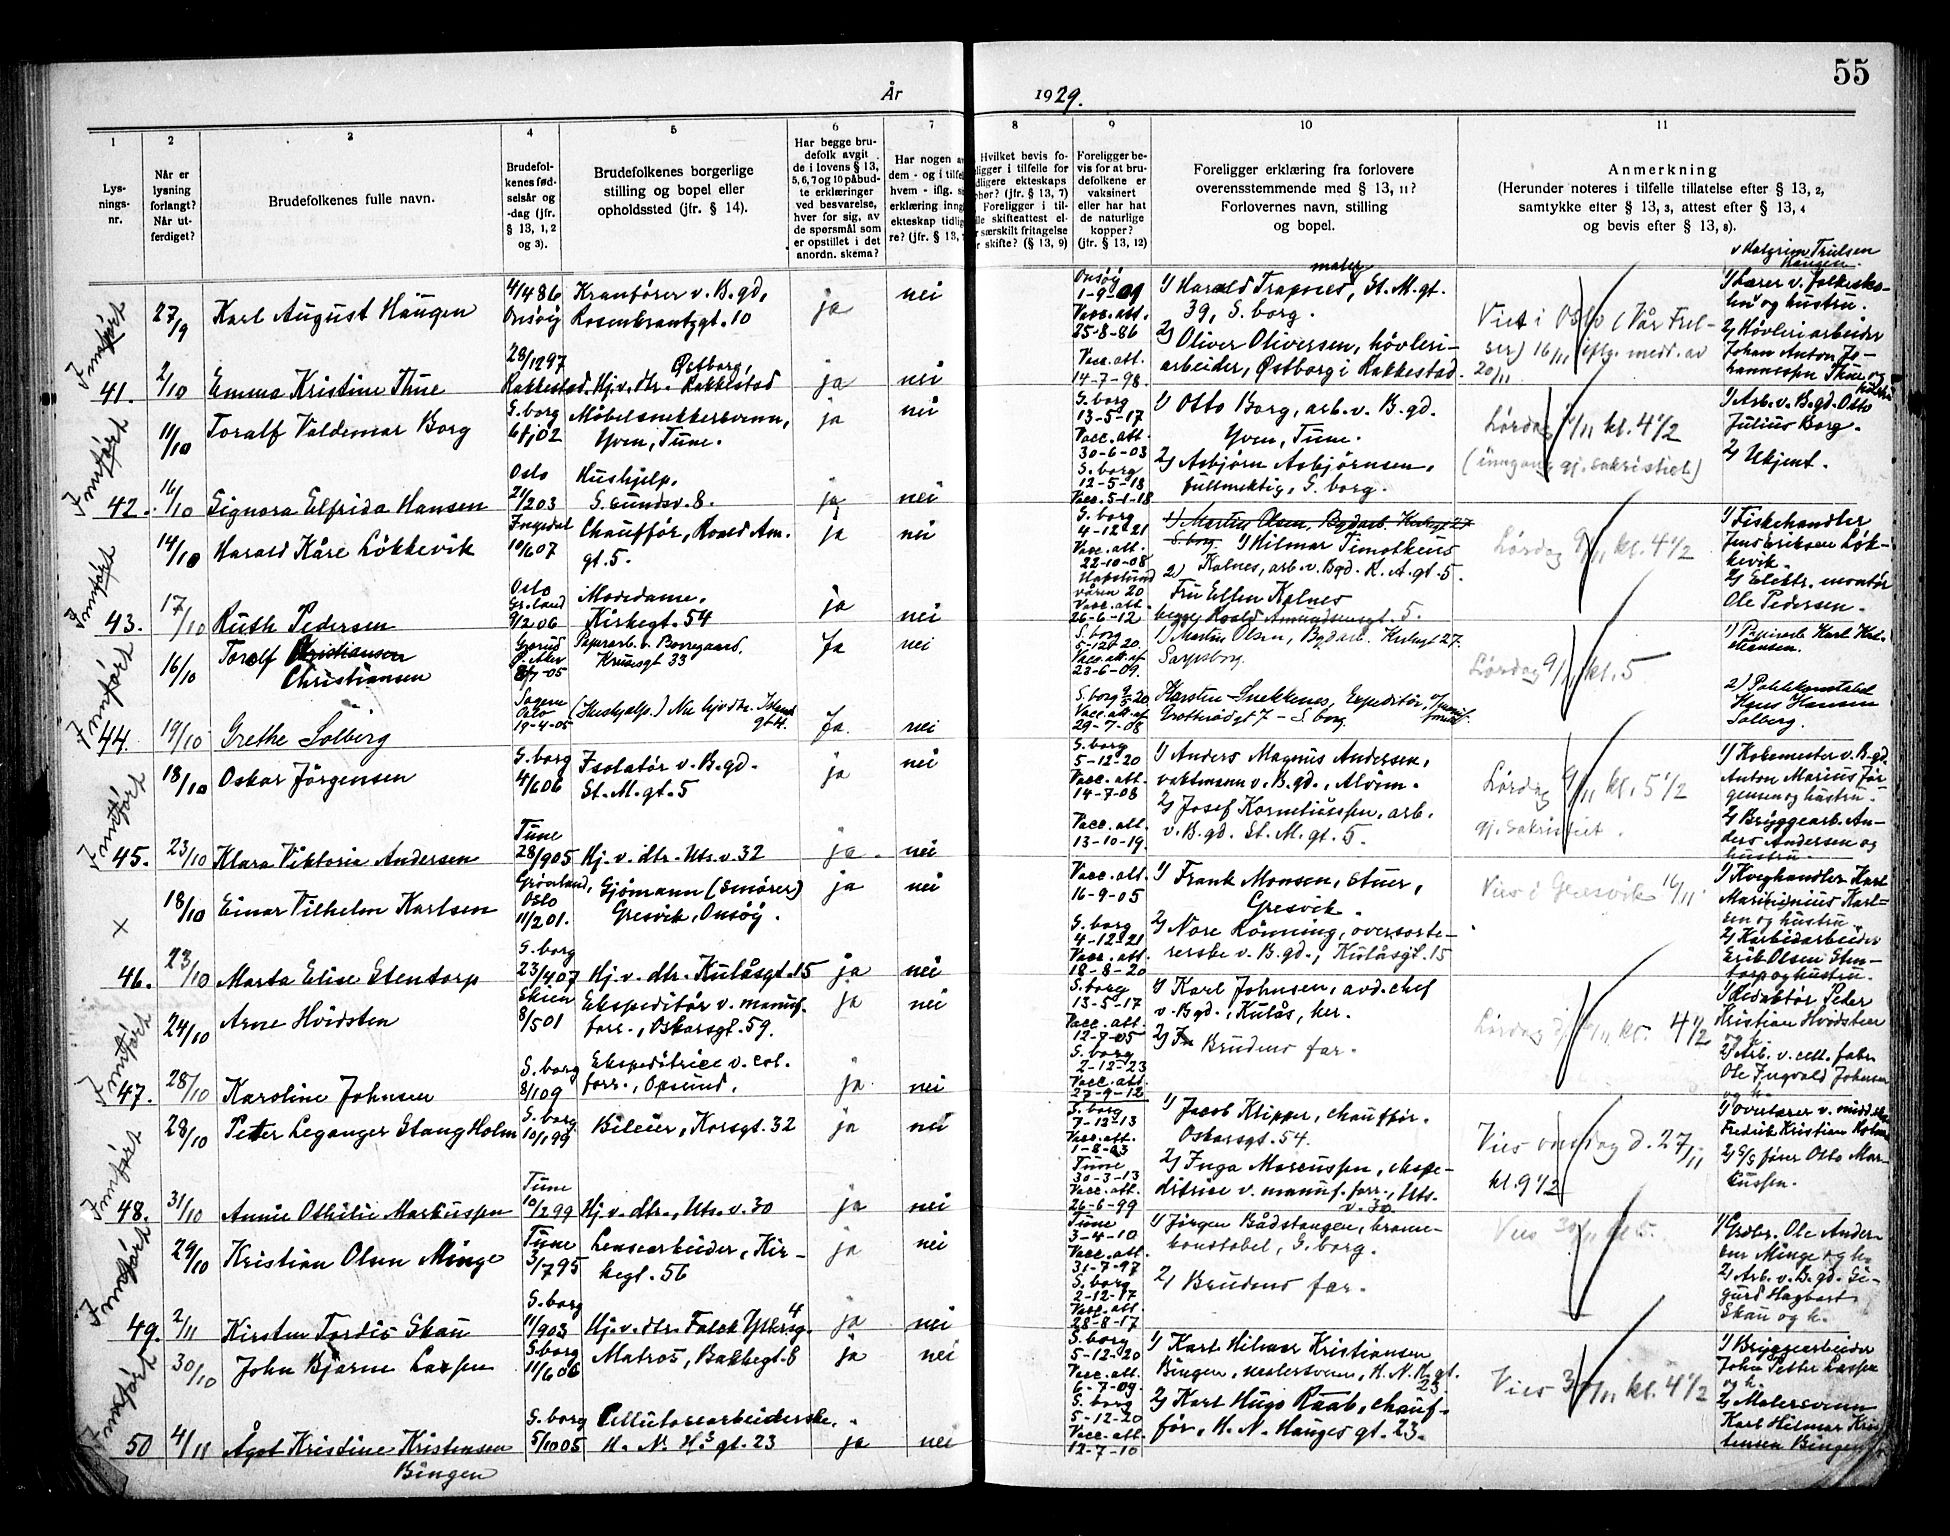 55
År
1929.
1
2
3
4
5
6
7
8
9
10
11
Lys-
nings-
nr.
Når er
lysning
forlangt?
Når ut-
ferdiget?
Brudefolkenes fulle navn.
Brudefol-
kenes fød-
selsår og
-dag (jfr.
§ 13, 1, 2
og 3).
Brudefolkenes borgerlige
stilling og bopel eller
opholdssted (jfr. § 14).
Har begge bru-
defolk avgit
de i lovens § 13,
5, 6, 7 og 10 påbud-
te erklæringer
ved besvarelse,
hver for sig, av
de spørsmål som
er opstillet i det
anordn. skema?
Har nogen a
dem - og i tilfel
hvem - iflg. s
erklæring inng
ekteskap tidlig
re? (jfr. § 13,
Hvilket bevis fo-
ligger i tilfelle for
dligere ekteskaps
pher? (jfr. § 13, 7)
Foreligger i til-
lle skifteattest el-
r særskilt fritagelse
r skifte? (§ 13, 9)
Foreligger be-
vis for at bru-
defolkene er
vaksinert
eller har hat
de naturlige
kopper?
(jfr. § 13, 12)
Foreligger erklæring fra forlovere
overensstemmende med § 13, 11?
Forlovernes navn, stilling
og bopel.
Anmerkning
(Herunder noteres i tilfelle tillatelse efter § 13, 2,
samtykke efter § 13, 3, attest efter § 13, 4
og bevis efter § 13, 8).
Innført
41.
27/9
Karl August Haugen
4/4 86
Onsøy
Kranfører v. B.gd,
Rosenkrantzgt. 10
ja
nei
Onsøy
1-9-09
Vacc. att.
25-8-86
1) Harald Trapnes, maler, St. M. gt.
39, S. borg.
Viet i Oslo (Vår Frel-
ser) 16/11 iflg. medd. av
20/11
Haugen.
1) Lærer v. folkesko-
len og hustru.
2/10
Emma Kristine Thue
28/12 97
Rakkestad
Østborg,
Hj. v. dtr. Rakkestad
ja
nei
Vacc. att.
14-7-98
2) Oliver Oliversen, høvleri-
arbeider, Østborg i Rakkestad.
2) Høvleriarbeider
Johan Anton Jo-
hannessen Thue og
hustru
Innført
42.
11/10
Toralf Valdemar Borg
S. borg
Møbelsnekkersvenn,
Yven, Tune.
ja
nei
S. borg
13-5-17
Vacc. att.
30-6-03
1) Otto Borg, arb. v. B. gd.
Yven, Tune.
Lørdag /11 kl. 4 1/2
(inngang gj. sakristiet)
1) Arb. v. B.gd. Otto
Julius Borg.
16/10
Signora Elfrida Hansen
Oslo
21/2 03
Hushjelp,
S. sundsv. 8.
ja
nei
S. borg
12-5-18
Vacc. 5-1-18
2) Asbjørn Asbjørnsen,
fullmektig, S. borg.
2) Ukjent.
Innført
43.
14/10
Harald Kåre Løkkevik
Ingedal
10/6 07
Chauffør, Roald Am.
gt. 5.
ja
nei
S. borg
4-12-21
Vacc. att.
22-10-08
1) Martin Olsen, Bgdarb. Kirkegt 27
S. borg 1) Hilmar Timotheus
Kalnes, arb. v. Bgd. R. A. gt. 5.
Lørdag 9/11 kl. 4 1/2
1) Fiskehandler
Jens Eriksen Løk-
kevik.
17/10
Ruth Pedersen
Oslo
Gr.land
9/2 06
Motedame,
Kirkegt. 54
ja
nei
Hafslund
våren 20
Vacc. att.
26-6-12
2) Fru Elsen Kalnes
begge Roald Amundsensgt. 5.
2) Elektr. montør
Ole Pedersen.
Innført
44.
16/10
Toralf Christiansen
Christiansen
Grorud
Ø. Aker
8/7-05
Papirarb. v. Borregaard,
Krusesgt 33
Ja
nei
S. borg
5-12-20
Vacc. att. af
23-6-09.
1) Martin Olsen, Bgdarb. Kirkegt 27.
Sarpsborg.
Lørdag 9/11 kl. 5
1) Papirarb. Karl Kri-
stiansen.
19/10
Grethe Solberg
Sagene
Oslo
19-4-05
(Hushjelp.) Nu hjv. dtr. Island
gt 4.
Ja.
nei
S. borg 9/5 20
Vacc. att. af
29-7-08
Karsten Snekkenes, Expeditør,
Grotterødgt 7 - S. borg
2) Politikonstabel
Hans Hansen
Solberg.
Innført
45.
18/10
Oskar Jørgensen
S. borg
4/6 06
Isolatør v. B. gd.
St. M. gt. 5
ja
nei
S. borg
5-12-20
Vacc. att.
14-7-08
1) Anders Magnus Andersen,
vaktmann v. B. gd., Alvim.
Lørdag 9/11 kl. 5 1/2
gj. sakristiet.
1) Kokemester v. B. gd.
Anton Marius Jør-
gensen og hustru.
23/10
Klara Viktoria Andersen
Tune
28/9 05
Hj. v. dtr. Uts. v. 32
ja.
nei
Vacc. att.
13-10-19
2) Josef Kornelius­sen, arb.
v. B. gd. St. M. gt. 5.
2) Bryggearb. An-
ders Andersen og
hustru.
x
46.
18/10
Einar Vilhelm Karlsen
Grønland,
Oslo
11/2 01.
Sjømann (Smører)
Gresvik, Onsøy.
ja
nei
Vacc. att.
16-9-05
1) Frank Monsen, stuer,
Gresvik.
Vies i Gresvik 16/11
1) Kveghandler Karl
Karl-
sen og hustru
23/10
Marta Elise Stentorp
S. borg
23/4 07
Hj. v. dtr. Kulåsgt. 15
ja
nei
S. borg
4-12-21
Vacc. att.
18-8-20
2) Nore Rønning, oversorte-
rerske v. B. gd., Kulåsgt. 15
2) Karbidarbeider
Erik Olsen Sten-
torp og hustru.
Innført
47.
24/10
Arne Hvidsten
Skien
8/5 01
Ekspeditør v. manuf.
forr., Oskarsgt. 59.
ja
nei
S. borg
13-5-17
Vacc. att.
12-7-05
1) Karl Johnsen, avd. chef
v. Bgd., Kulås, her.
Lørdag /11 kl. 4 1/2
1) Redaktør Peder
Kristian Hvidsten
28/10
Karoline Johnsen
S. borg
8/1 09
Ekspeditrice v. col.
forr., Opsund.
ja
nei
S. borg
2-12-23
Vacc. att.
27-9-12
2) Brudens far.
2) Arb. v. cell. fabr.
Ole Ingvald Johnsen
og h.
Innført
48.
28/10
Peter Leganger Stang Holm
S. borg
10/1 99
Bileier, Korsgt. 32
ja
nei
S. borg
7-12-13
Vacc. att.
1-8-03
1) Jacob Klipper, chauffør.
Oskarsgt. 54.
Vies onsdag d. 27/11
kl. 9 1/2
1) Overlærer v. midd.
Fredrik Kristian Holm
31/10
Annie Othilie Markussen
Tune
10/2 99
Hj. v. dtr., Uts. v. 30
ja
nei
Tune
30-3-13
Vacc. att.
26-6-99
2) Inga Marcussen, ekspe-
ditrice v. manuf. forr., Uts.
v. 30
2) S/S fører Otto Mar-
cussen.
Innført
49.
29/10
Kristian Olsen Minge
Tune
3/7 95
Lensearbeider, Kir-
kegt. 56
ja
nei
Tune
3-4-10
Vacc. att.
31-7-97
1) Jørgen Bådstangen,
konstabel, S. borg.
Vies 30/11 kl 5.
1) Gårdbr. Ole Ander-
sen Minge og h.
2/11
Kirsten Tordis Skau
S. borg
11/9 03
Hj. v. dtr. Falck Ytters g. 4
ja
nei
S. borg
2-12-17
Vacc. att.
28-8-17
2) Brudens far.
2) Arb. v. B. gd. Si-
gurd Hagbart
Skau og h.
Innført
50
30/10
John Bjarne Larsen
S. borg
11/6 06
Matros, Bakkegt. 8
ja
nei
S. borg
5-12-20
Vacc. att.
6-7-09
1) Karl Hilmar Kristiansen
Bingen, malersvenn, H. N. H. gt.
23
Vies 30/11 kl. 4 1/2
1) Bryggearbeider
John Petter Larsen
og h.
4/11
Ågot Kristine Kristensen
Bingen
S. borg
5/10 05
Cellulosearbeiderske.
H. N. H.s gt. 23
ja
nei
S. borg
5-12-20
Vacc. att.
12-7-10
2) Karl Hugo Raab, chauf-
før, H. N. Hauges gt. 23.
2) Malersvenn
Karl Hilmar Kris
tensen Bingen